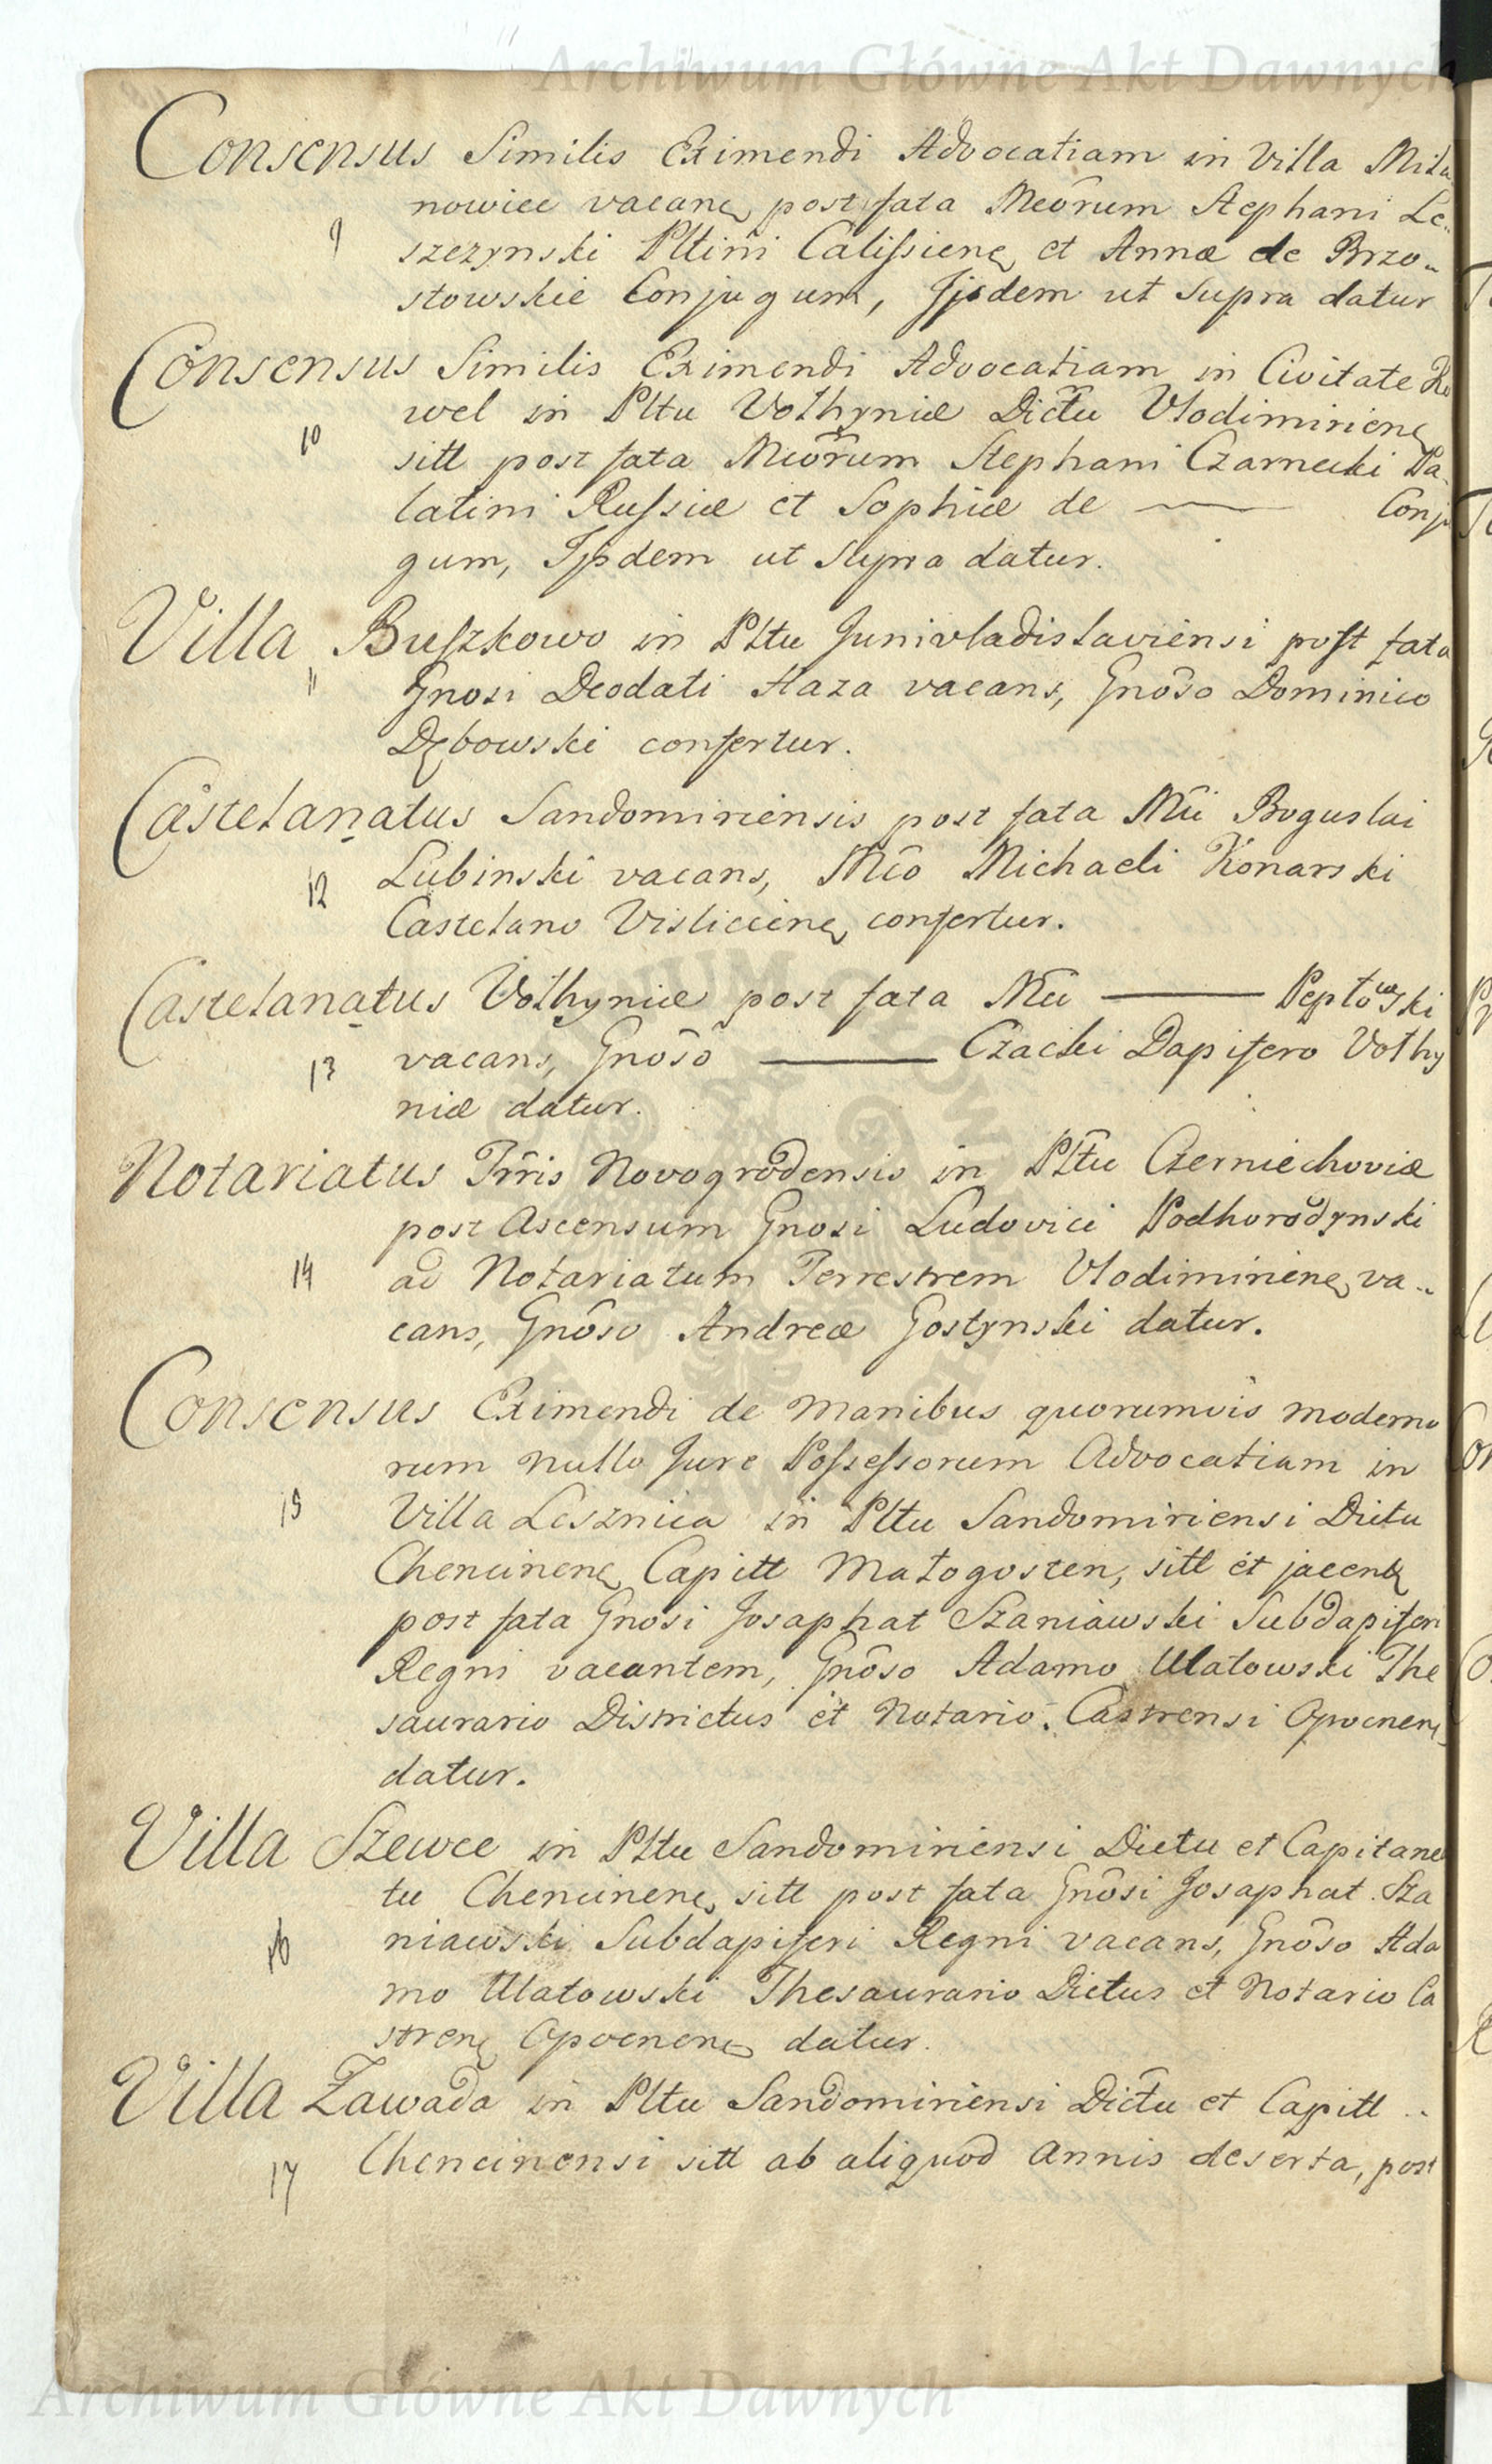 Archiwum Główne Akt Dawnych
Consensus Similis Eximendi Advocatiam in Villa Mila
nowice vacane post fata Meôrum Stephani Le-
9
szczynski Pltini Calissiene et Annæ de Brzo-
stowskie Conjugum, Ijsdem ut Supra datur
Consensus Similis Eximendi Advocatiam in Civitate Ko
wel in Pltu Volhyniæ Dictu Vlodimiriene
10
sitt post fata Meôrum Stephani Czarnecki Pa-
latini Russiæ et Sophiæ de — Conju
gum, Ijsdem ut Supra datur.
Villa Buszkowo in Pltu Junivladislaviensi post fata
11
Gnosi Deodati Haza vacans, Gnôso Dominico
Dębowski confertur.
Castelanatus Sandomiriensis post fata Mci Boguslai
12
Lubinski vacans, Mco Michaeli Konarski
Castelano Visliciene confertur.
Castelanatus Volhyniæ post fata Mci — Peptowski
13
vacans, Gnoso — Czacki Dapifero Volhy
niæ datur.
Notariatus Trris Novogrodensis in Pltu Czerniechoviæ
post Ascensum Gnosi Ludovici Podhorodynski
14
ad Notariatum Terrestrem Vlodimiriene va-
cans, Gnôso Andreæ Gostynski datur.
Consensus Eximendi de Manibus quorumvis moderno
rum nullo Jure Possessorum Advocatiam in
15
Villa Lesznica in Pltu Sandomiriensi Dictu
Chencinene Capitt Małogosten, sitt et jacene
post fata Gnosi Josaphat Szaniawski Subdapiferi
Regni vacantem, Gnôso Adamo Ulatowski The
saurario Districtus et Notario Castrensi Opocnene
datur.
Villa Szewce in Pltu Sandomiriensi Dictu et Capitanea
tu Chencinene sitt post fata Gnôsi Josaphat Sza
16
niawski Subdapiferi Regni vacans, Gnôso Ada
mo Ulatowski Thesaurario Dictus et Notario Ca
strene Opocnene datur.
Villa Zawada in Pltu Sandomiriensi Dictu et Capitt
17
Chencinensi sitt ab aliquod annis deserta, post
Archiwum Główne Akt Dawnych